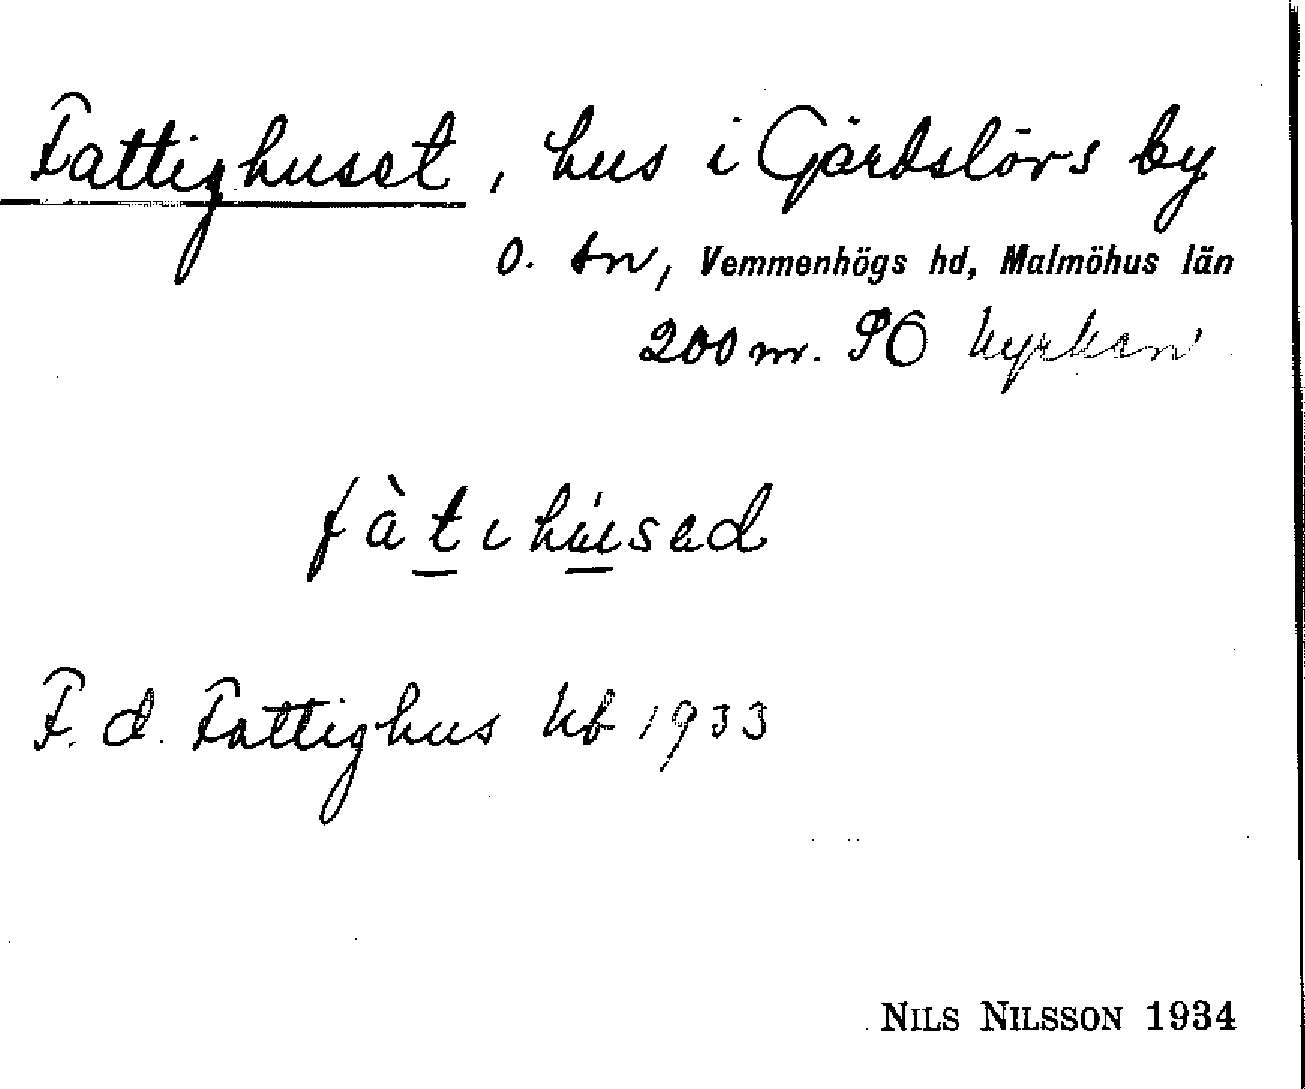 Fattighuset, hus i Gärdslövs by
o. sn, Vemmenhögs hd, Malmöhus län
200 m. SO kyrkan
fàtıhúsed
F. d. Fattighus kb 1933
NILS NILSSON 1934